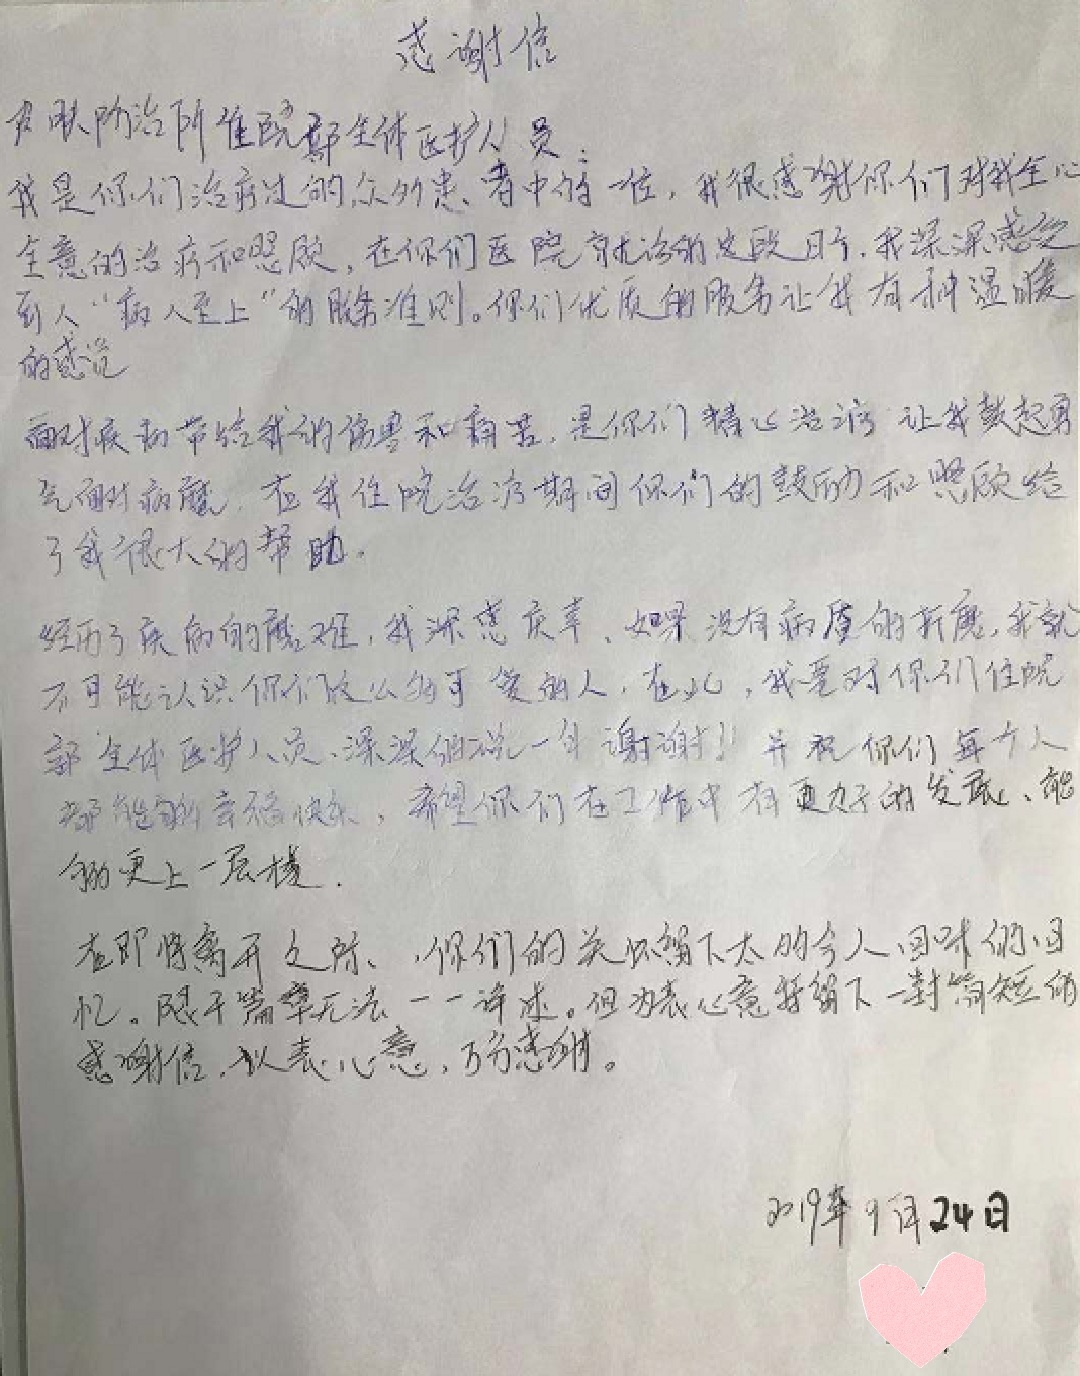 感谢信
皮肤防治所住院部全体医护人员：
我是你们治疗过的众多患者中的一位，我很感谢你们对我全心
全意的治疗和照顾，在你们医院就诊的这段日子，我深深感受
到人“病人至上”的服务准则。你们优质的服务让我有种温暖
的感觉
面对疾病带给我的伤害和痛苦，是你们精心治疗让我鼓起勇
气面对病魔，在我住院治疗期间你们的鼓励和照顾给
了我很大的帮助。
经历了疾病的磨难，我深感庆幸、如果没有病魔的折磨，我就
不可能认识你们这么的可爱的人，在此，我要对你们住院
部全体医护人员、深深的说一声谢谢！！并祝你们每个人
都能够幸福快乐，希望你们在工作中有更好的发展、能
够更上一层楼．
在即将离开之际、，你们的关怀留下太的令人回味的回
忆。限于篇章无法一一详述。但为表心意特留下一封简短的
感谢信，以表心意，万分感谢。
2019年9月24日